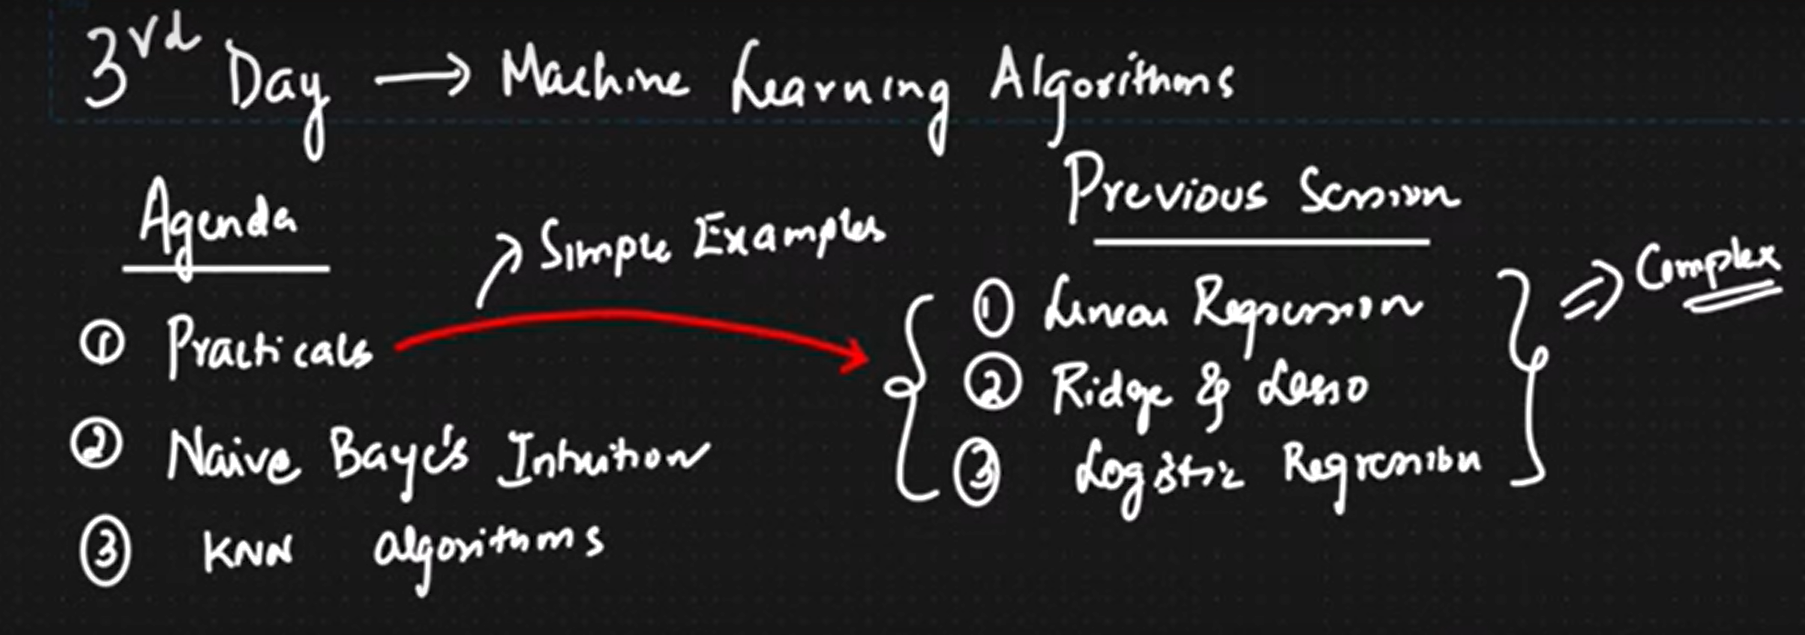 3rd Day → Machine Learning Algorithms
Agenda
Simple Examples
① Practicals
② Naive Baye's Intuition
③ KNN algorithms
Previous Session
① Linear Regression
② Ridge & Lasso
③ Logistic Regression
⇒ Complex